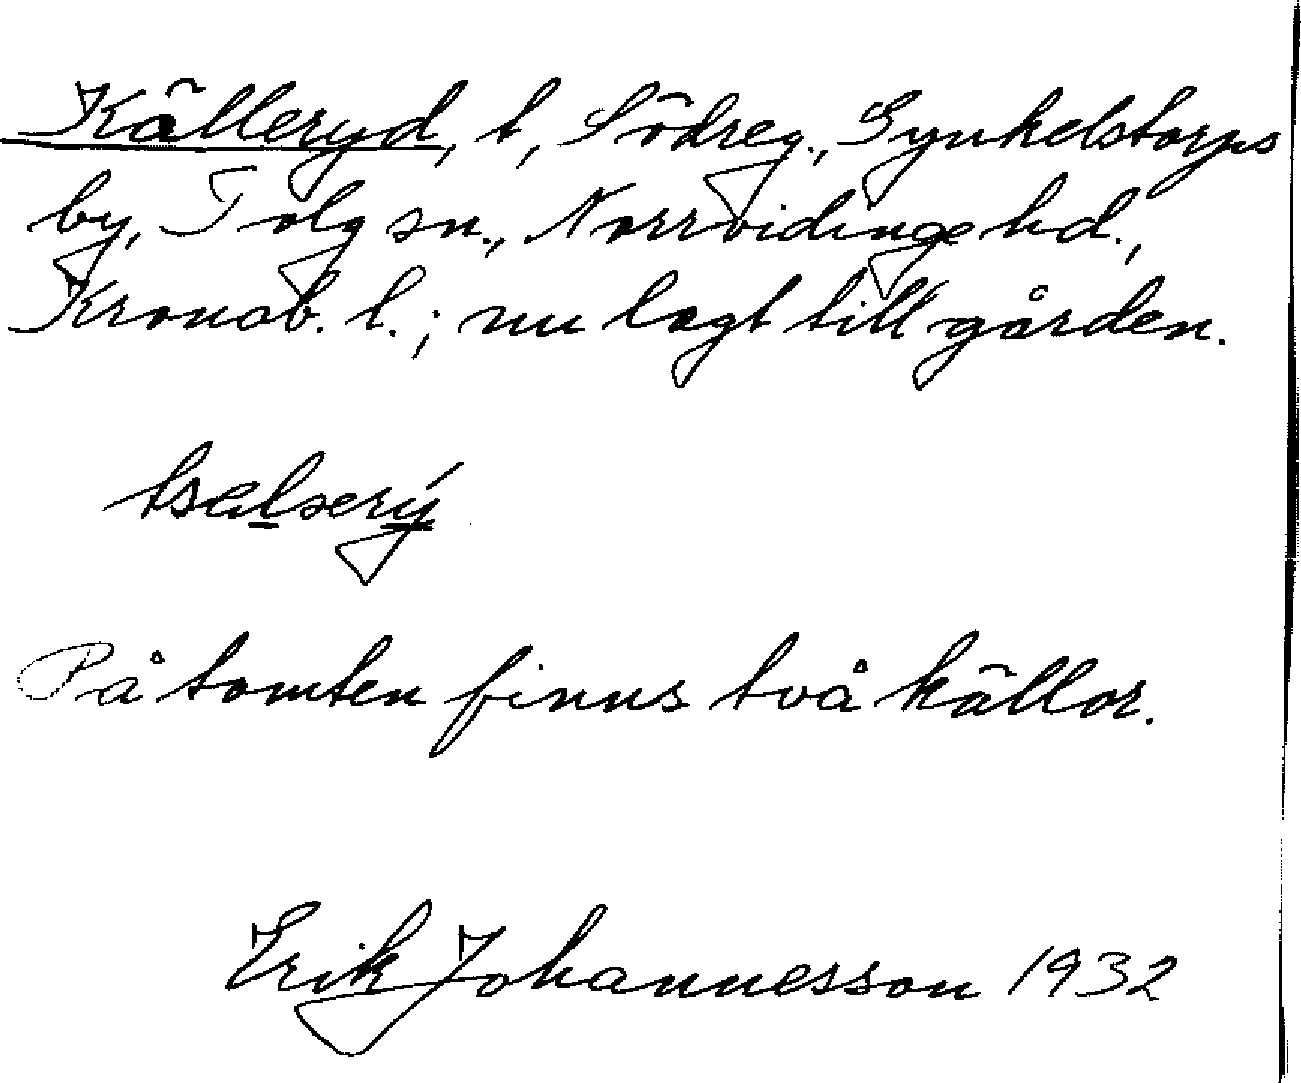 Källeryd, t, Södreg., Synkelstorps
by, Tolg sn., Norrvidinge hd.,
Kronob. l.; nu lagt till gården.
På tomten finns två källor.
Erik Johannesson 1932